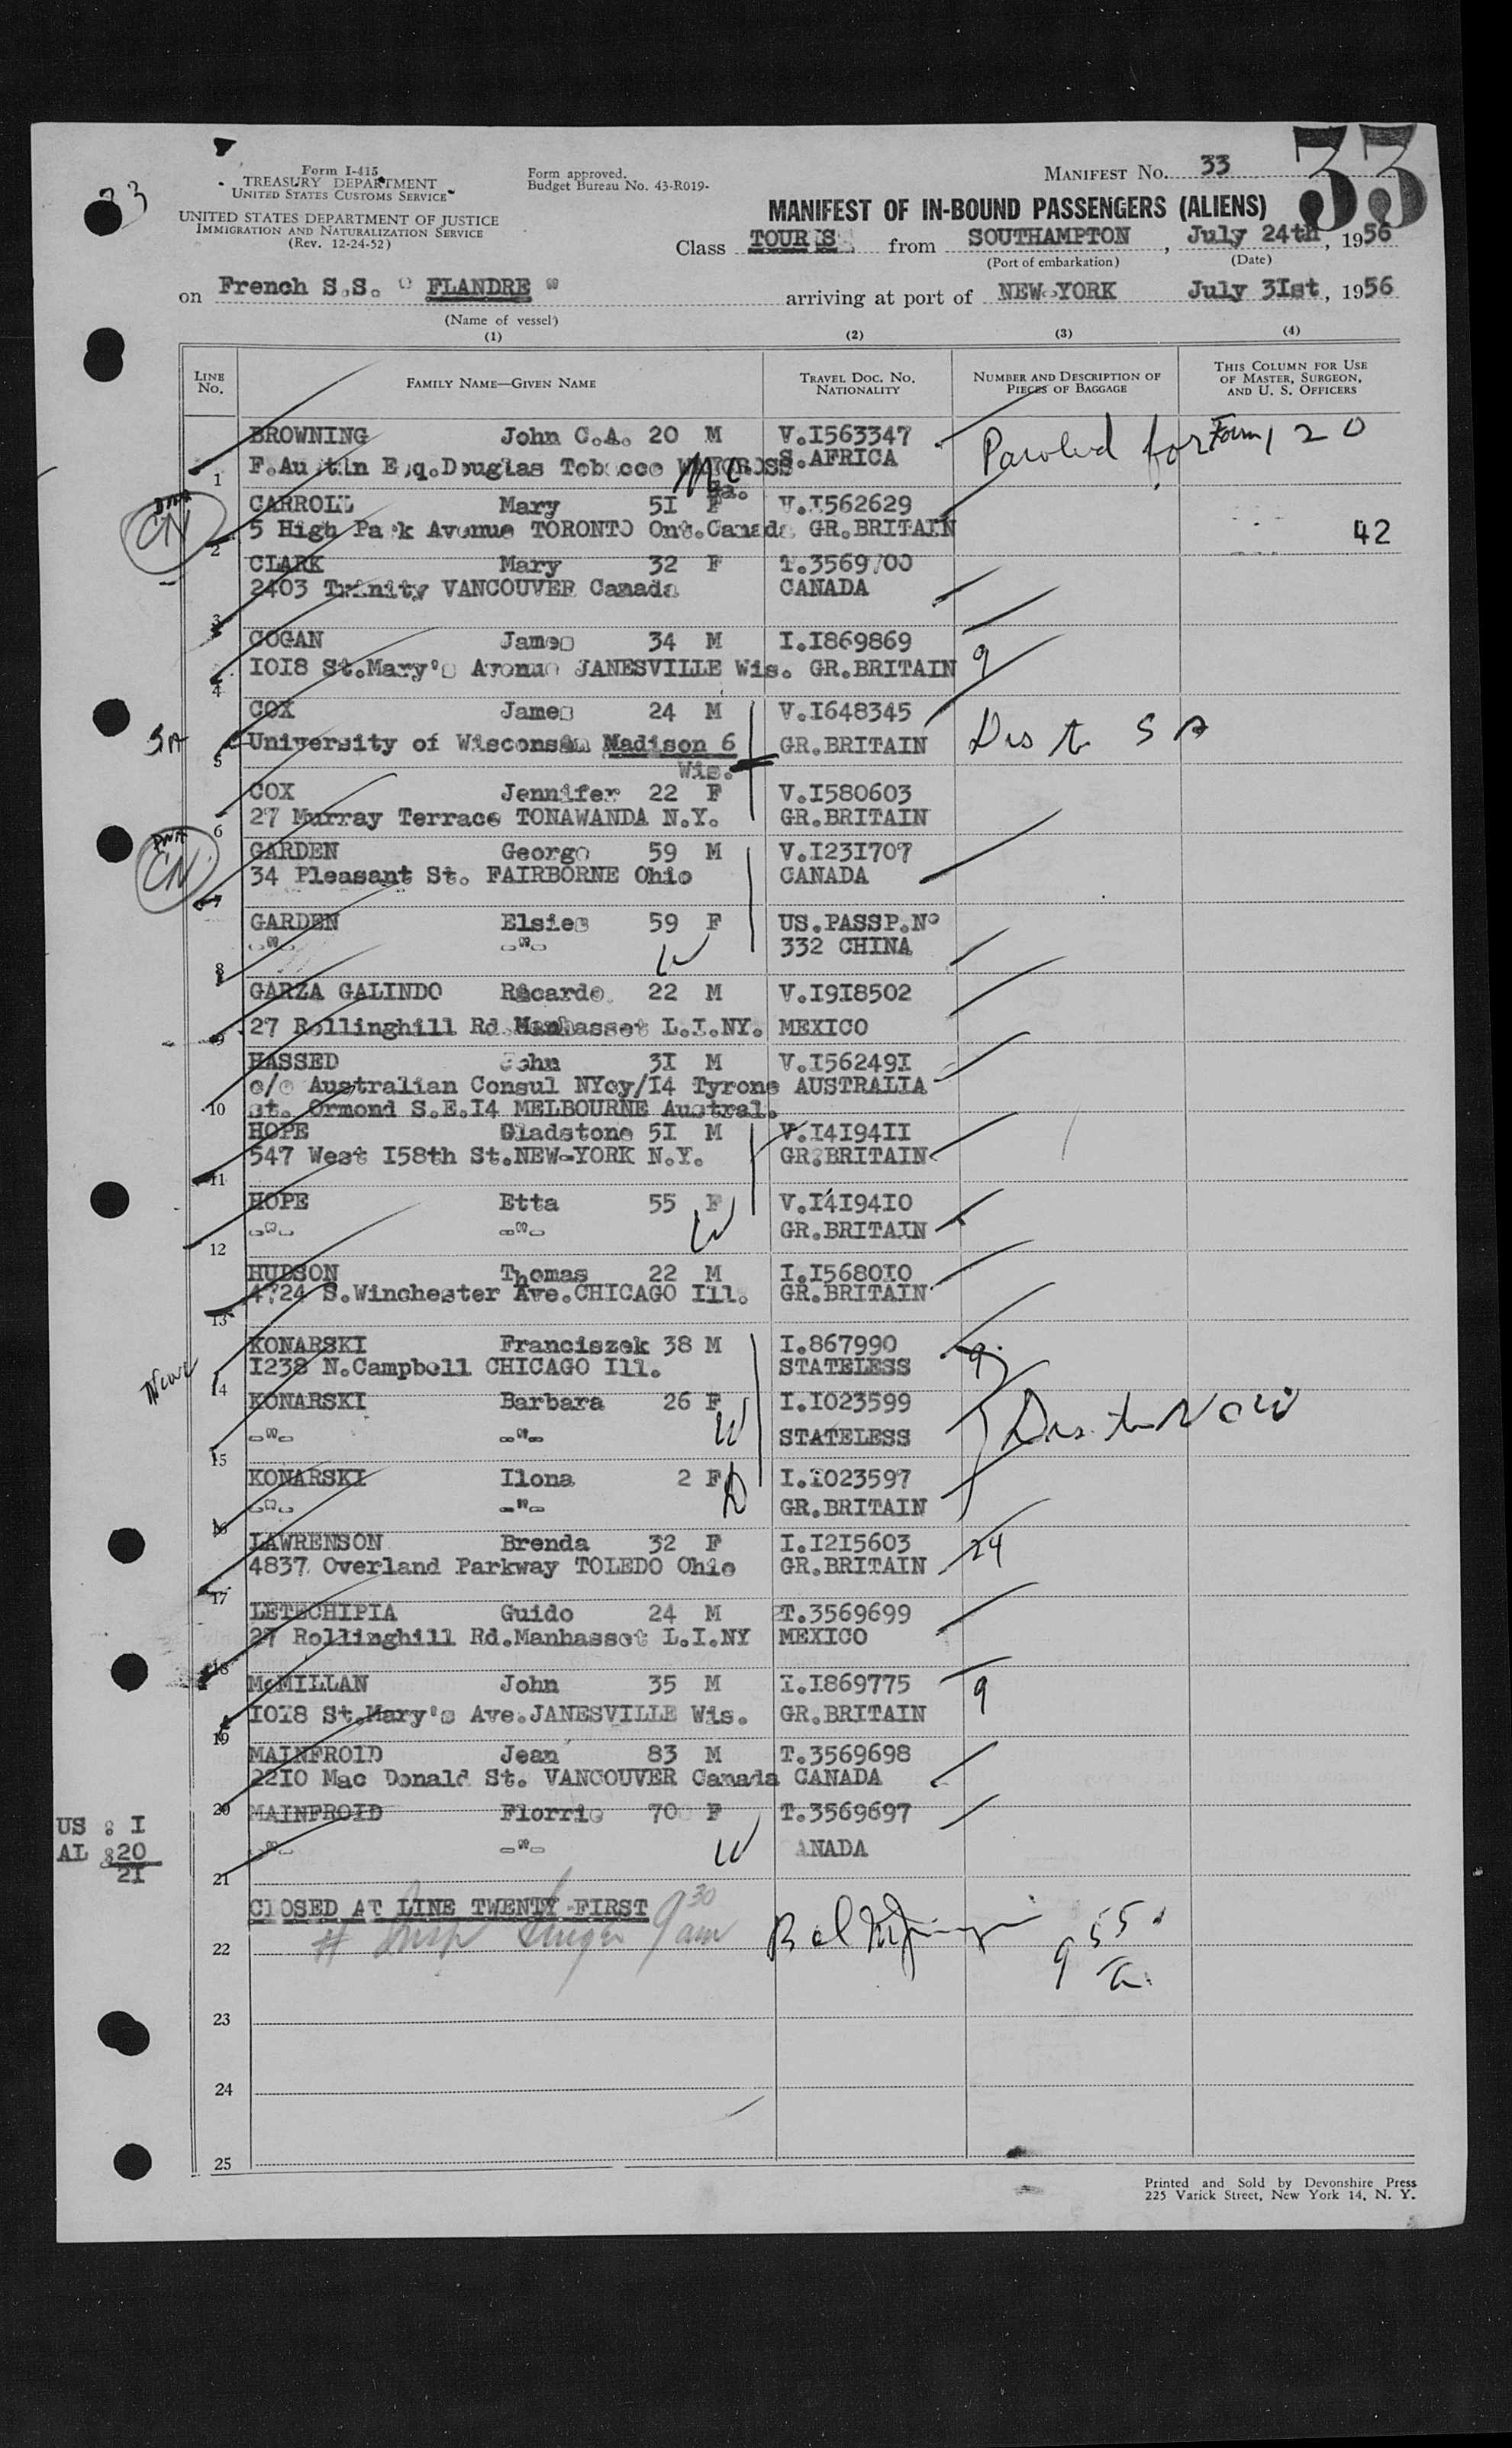 33
Form I-415
TREASURY DEPARTMENT
UNITED STATES CUSTOMS SERVICE
UNITED STATES DEPARTMENT OF JUSTICE
IMMIGRATION AND NATURALIZATION SERVICE
(Rev. 12-24-52)
Form approved.
Budget Bureau No. 43-R019-
MANIFEST No. 33
33
MANIFEST OF IN-BOUND PASSENGERS (ALIENS)
Class TOURIS from SOUTHAMPTON, July 24th, 1956
(Port of embarkation) (Date)
on French S.S. " FLANDRE " arriving at port of NEW-YORK July 3Ist, 1956
(Name of vessel)
(1) (2) (3) (4)
LINE No. FAMILY NAME—GIVEN NAME TRAVEL DOC. NO. NATIONALITY NUMBER AND DESCRIPTION OF PIECES OF BAGGAGE THIS COLUMN FOR USE OF MASTER, SURGEON, AND U. S. OFFICERS
BROWNING John C.A. 20 M V.I563347 Paroled for Form 120
1 F.Austin Esq.Douglas Tobacco WAYCROSS S.AFRICA
Ga.
CARROLL Mary 5I F V.I562629
CN
2 5 High Park Avenue TORONTO Ont.Canada GR.BRITAIN 42
CLARK Mary 32 F T.3569700
2403 Trinity VANCOUVER Canada CANADA
3
COGAN James 34 M I.I869869
I0I8 St.Mary's Avenue JANESVILLE Wis. GR.BRITAIN 9
4
COX James 24 M V.I648345
SA University of Wisconsin Madison 6 GR.BRITAIN Des to SA
5 Wis.
COX Jennifer 22 F V.I580603
6 27 Murray Terrace TONAWANDA N.Y. GR.BRITAIN
GARDEN George 59 M V.I23I707
CN
34 Pleasant St. FAIRBORNE Ohio CANADA
7
GARDEN Elsies 59 F US.PASSP.N°
-"- -"- W 332 CHINA
8
GARZA GALINDO Ricardo 22 M V.I9I8502
9 27 Rollinghill Rd.Manhasset L.I.NY. MEXICO
HASSED John 3I M V.I56249I
c/o Australian Consul NYcy/I4 Tyrone AUSTRALIA
10 st. Ormond S.E.I4 MELBOURNE Austral.
HOPE Gladstone 5I M V.I4I94II
547 West I58th St.NEW-YORK N.Y. GR.BRITAIN
11
HOPE Etta 55 F V.I4I94I0
-"- -"- W GR.BRITAIN
12
HUDSON Thomas 22 M I.I5680I0
4724 S.Winchester Ave.CHICAGO Ill. GR.BRITAIN
13
KONARSKI Franciszek 38 M I.867990 9
I238 N.Campbell CHICAGO Ill. STATELESS
14
KONARSKI Barbara 26 F I.I023599
-"- -"- W STATELESS
15
KONARSKI Ilona 2 F I.I023597
-"- -"- D GR.BRITAIN
16
LAWRENSON Brenda 32 F I.I2I5603 24
4837 Overland Parkway TOLEDO Ohio GR.BRITAIN
17
LETECHIPIA Guido 24 M T.3569699
27 Rollinghill Rd.Manhasset L.I.NY MEXICO
18
McMILLAN John 35 M I.I869775 9
I0I8 St.Mary's Ave.JANESVILLE Wis. GR.BRITAIN
19
MAINFROID Jean 83 M T.3569698
22I0 Mac Donald St. VANCOUVER Canada CANADA
20
MAINFROID Florrie 70 F T.3569697
US : I
AL :20
2I
-"- -"- W ANADA
21
CLOSED AT LINE TWENTY-FIRST 9 30 am
22
9 55 a.
23
24
25
Printed and Sold by Devonshire Press
225 Varick Street, New York 14, N. Y.